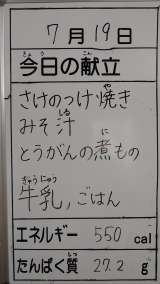 7月19日
きょう こん
今日の献立
や
さけのつけ焼き
しる
みそ汁
に
とうがんの煮もの
ぎゅうにゅう
牛乳,ごはん
エネルギー 550 cal
しつ
たんぱく質 27.2 g